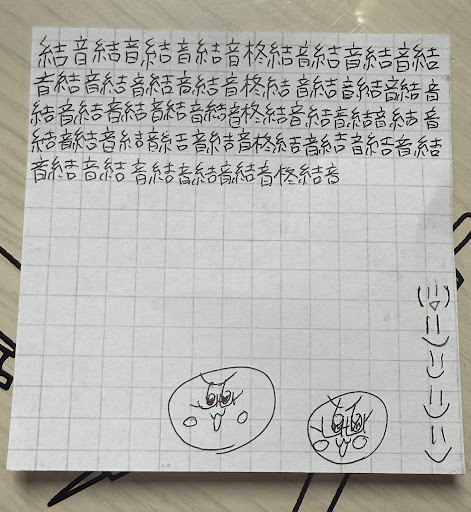 結音結音結音結音柊結音結音結音結
音結音結音結音結音柊結音結音結音結音
結音結音結音結音結音柊結音結音結音結音
結音結音結音結音結音柊結音結音結音結
音結音結音結音結音結音柊結音